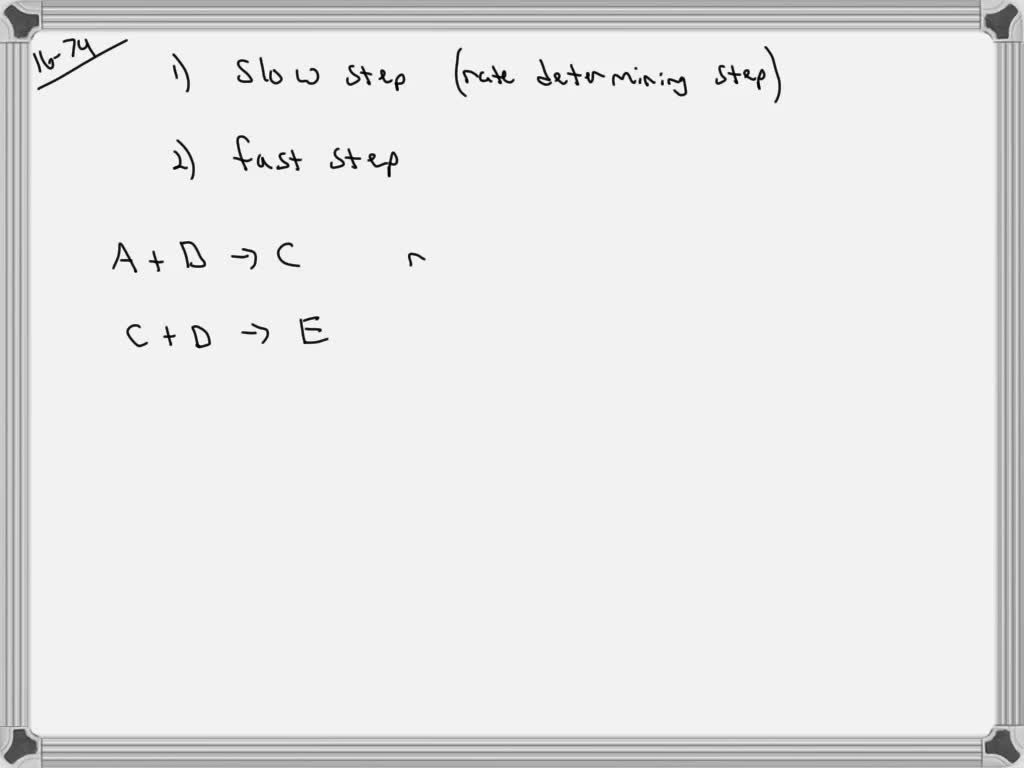 16-74
1) Slow step (rate determining step)
2) fast step
A + D → C r
C + D → E